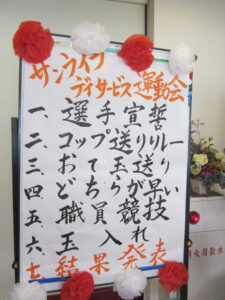 サンライフ
デイサービス運動会
一、選手宣誓
二、コップ送りリレー
三、おて玉送り
四、どちらが早い
五、職員競技
六、玉入れ
七、結果発表
火用散水